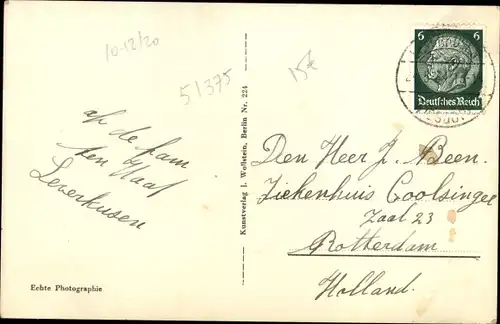 10-12/20
51375
15€
6 6
Deutsches Reich
op de
Leverkusen
Den Heer J. Been.
Ziekenhuis Coolsingel
Zaal 23
Rotterdam
Holland.
Kunstverlag J. Wollstein, Berlin Nr. 224
Echte Photographie